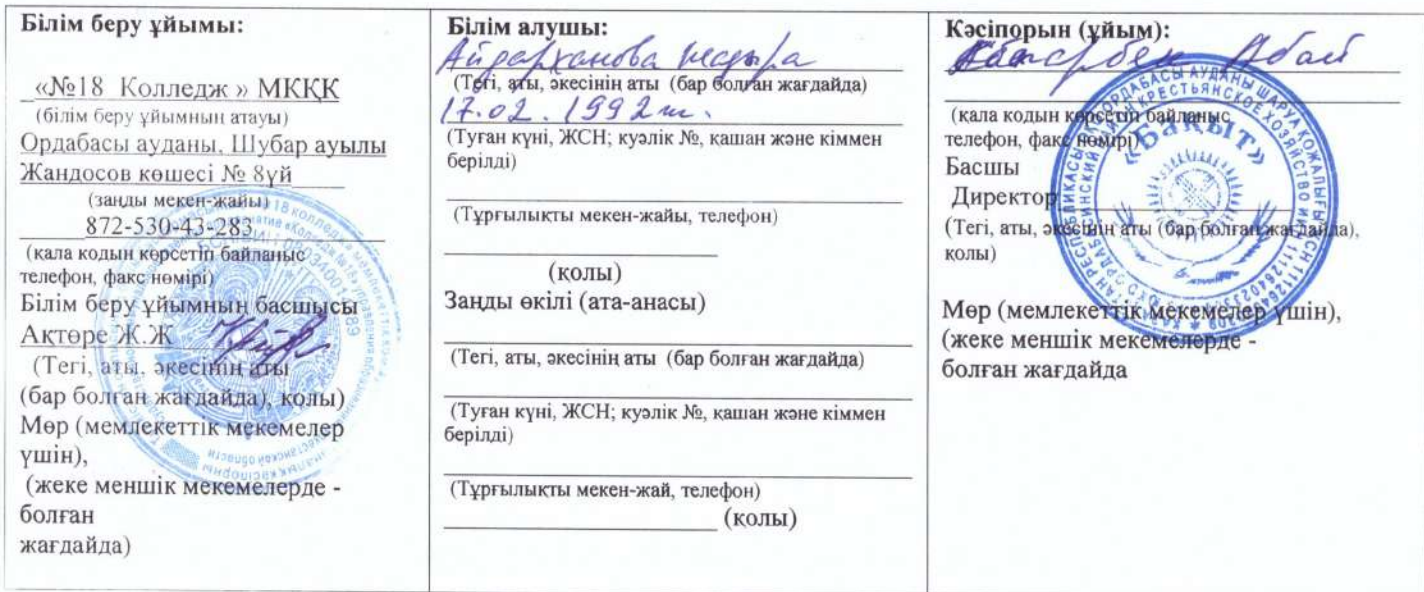 Білім беру ұйымы:
«№18 Колледж » МКҚК
(білім беру ұйымның атауы)
Ордабасы ауданы, Шубар ауылы
Жандосов көшесі № 8үй
(заңды мекен-жайы)
872-530-43-283
(қала кодын көрсетіп байланыс
телефон, факс нөмірі)
Білім беру ұйымның басшысы
Ақтөре Ж.Ж
(Тегі, аты, әкесінің аты
(бар болған жағдайда), қолы)
Мөр (мемлекеттік мекемелер
үшін),
(жеке меншік мекемелерде -
болған
жағдайда)
Білім алушы:
Айдарханова
(Тегі, аты, әкесінің аты (бар болған жағдайда)
17.02.1992ж.
(Туған күні, ЖСН; куәлік №, қашан және кіммен
берілді)
(Тұрғылықты мекен-жайы, телефон)
(қолы)
Заңды өкілі (ата-анасы)
(Тегі, аты, әкесінің аты (бар болған жағдайда)
(Туған күні, ЖСН; куәлік №, қашан және кіммен
берілді)
(Тұрғылықты мекен-жай, телефон)
(қолы)
Кәсіпорын (ұйым):
Абай
(қала кодын көрсетіп байланыс
телефон, факс нөмірі)
Басшы
Директор
(Тегі, аты, әкесінің аты (бар болған жағдайда),
қолы)
Мөр (мемлекеттік мекемелер үшін),
(жеке меншік мекемелерде -
болған жағдайда
«Бақыт»